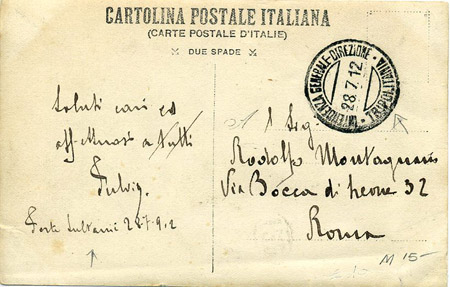 CARTOLINA POSTALE ITALIANA
(CARTE POSTALE D'ITALIE)
DUE SPADE
INTENDENZA GENERALE-DIREZIONE · TRIPOLITANIA ·
28·7·12
Saluti cari ed
affettuosi a tutti
Fulvio
Forte Sultanié 28·7·912
Sig.
Rodolfo Montagnani
Via Bocca di Leone 32
Roma
M 15-